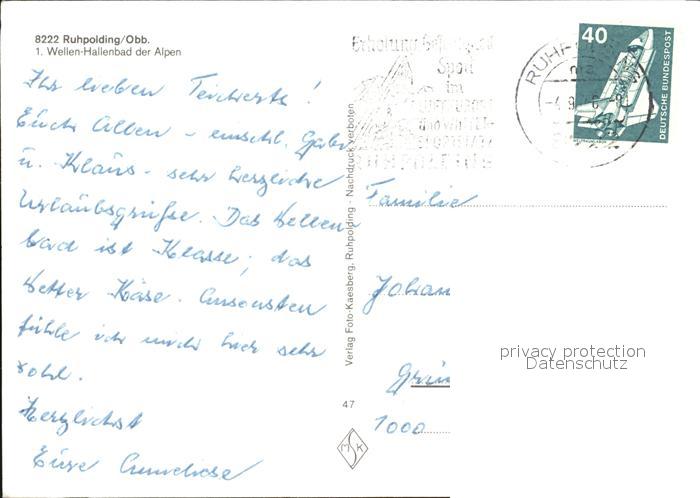 8222 Ruhpolding/Obb.
1. Wellen-Hallenbad der Alpen
Ihr lieben Teicherts!
Euch Allen - einschl. Gabi
u. Klaus - sehr herzliche
Urlaubsgrüße. Das Wellen-
bad ist Klasse; das
Wetter Käse. Ansonsten
fühle ich mich hier sehr
wohl.
Herzlichst
Eure Anneliese
Verlag Foto-Kaesberg, Ruhpolding - Nachdruck verboten
47
MSK
Erholung
Sport
im
40
DEUTSCHE BUNDESPOST
Familie
Johan
Grün
1000
privacy protection
Datenschutz